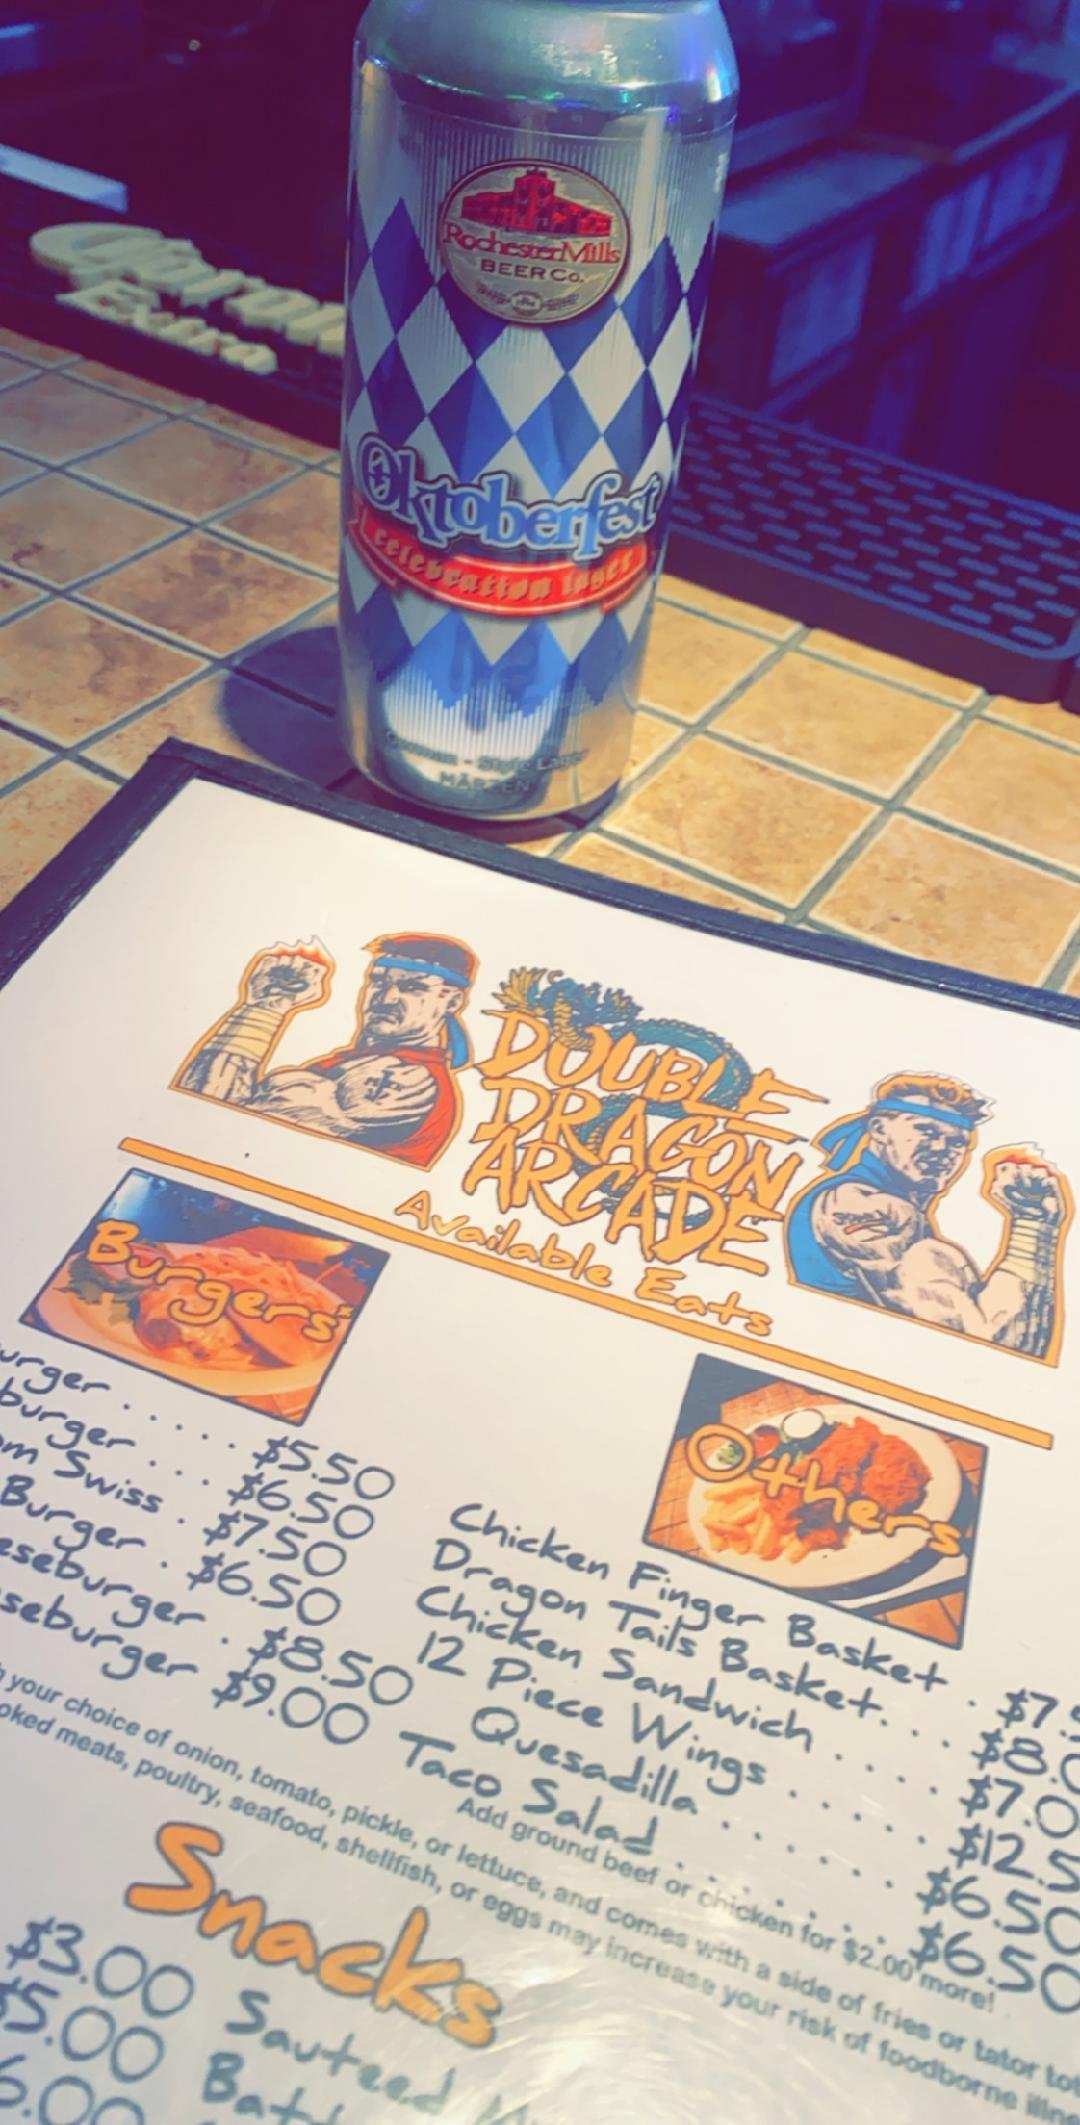 Corona
Extra
RochesterMills
BEER Co.
Oktoberfest
celebration lager
German - Style Lager
MÄRZEN
DOUBLE
DRAGON
ARCADE
Available Eats
Burgers
urger ..... $5.50
burger .... $6.50
om Swiss . $7.50
Burger . $6.50
eseburger . $8.50
seburger $9.00
Others
Chicken Finger Basket . $7.5
Dragon Tails Basket... $8.0
Chicken Sandwich ..... $7.0
12 Piece Wings ...... $12.5
Quesadilla ....... $6.50
Taco Salad ....... $6.50
Add ground beef or chicken for $2.00 more!
your choice of onion, tomato, pickle, or lettuce, and comes with a side of fries or tator tot
oked meats, poultry, seafood, shellfish, or eggs may increase your risk of foodborne illne
Snacks
$3.00 Sauteed
$5.00
6.00